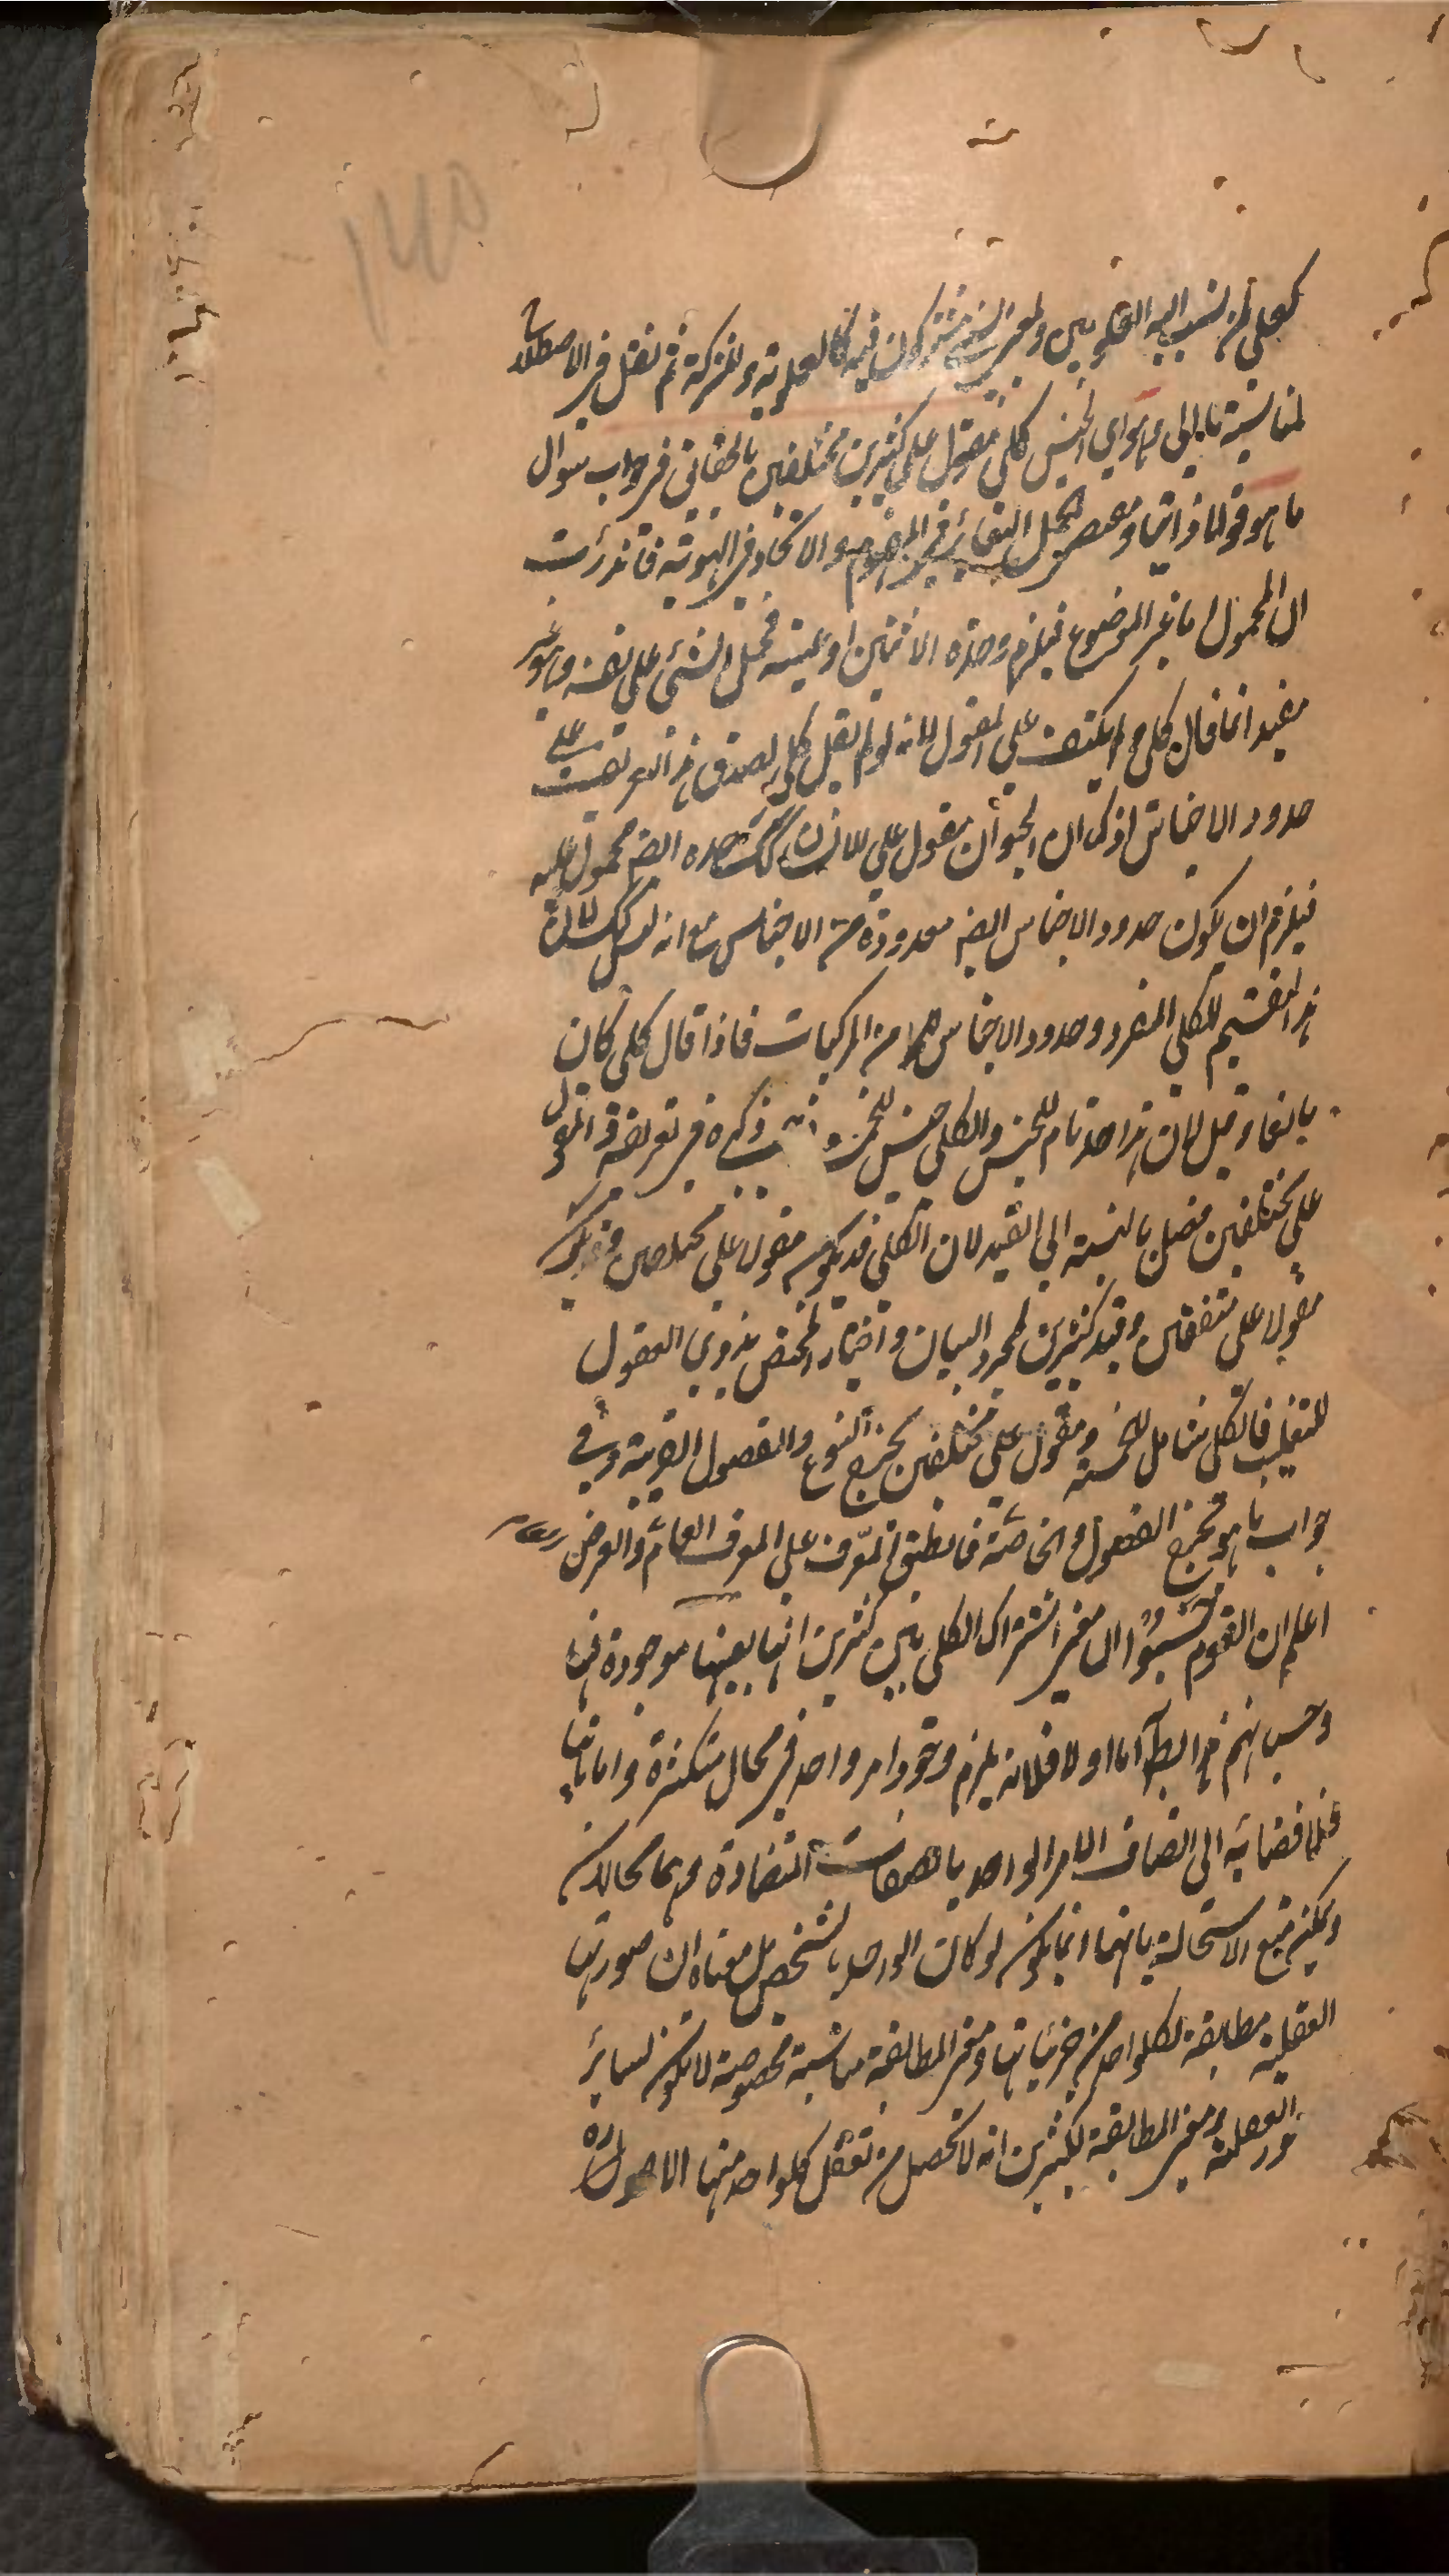 كعلي يشترك نسب اليه العلويين والمعنى الشخصي يشتركون فيه كالعلوية والمركة ثم نقل في الاصطلاح
لمناسبته ما الى ما هو اي الجنس كلي مقول على كثيرين مختلفين بالحقائق في جواب سوال
ما هو قولا ذاتيا ومعنى الحمل التغائر في المفهوم والاتحاد في الهوية فاندرأت
ان المحمول ما غير الموضوع فيلزم وحدة الاثنين او عينه فحمل الشيء على نفسه وهو غير
مفيد انما قال كلي ولم يكتف على المقول لانه لو لم يقل كلي لصدق هذا التعريف على
حدود الاجناس اذ كما ان الحيوان مقول على الانسان كك حده ايضا محمول عليه
فيلزم ان يكون حدود الاجناس ايضا معدودة من الاجناس مع انه ليس كك لان
هذا تقسيم للكلي المفرد وحدود الاجناس من المركبات فاذا قال كلي كان
بالغا وقيل لان هذا حد تام للجنس والكلي جنس للخمسة ذكره في تعريفه والمقول
على مختلفين فصل بالنسبة الى القيد لان الكلي قد يكون مقولا على مختلفين وقد يكون
مقولا على متفقين وقيد كثيرين لمجرد البيان واختيار المختص بذوي العقول
للتغليب فالكل شامل للخمسة ومقول على مختلفين يخرج النوع والفصول القريبة وفي
جواب ما هو يخرج الفصول والخاصة فانطبق المعرّف على المعرف العام والعرض
اعلم ان القوم نسبوا الى معنى اشتراك الكلي بين كثيرين انها بعينها موجودة فيها
وحسبانهم هذا باطل اما اولا فلانه يلزم وجود امر واحد في محال متكثرة واما ثانيا
فلافضائه الى اتصاف الامر الواحد بالصفات المتضادة وهما محالان
ويمكن منع الاستحالة بانها انما يكون لو كان الواحد بالشخص بل معناه ان صورتها
العقلية مطابقة لكل واحد من جزئياتها ومعنى المطابقة مناسبة مخصوصة لا تكون لسائر
ور العقلية ومعنى المطابقة لكثيرين انه لا يحصل من تعقل كل واحد منها الا صورة